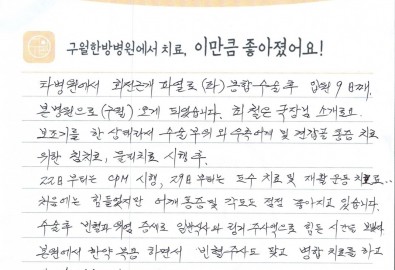 구월한방병원에서 치료, 이만큼 좋아졌어요!
타병원에서 회전근개 파열로 (좌) 봉합수술 후 입원 9일째,
본병원으로 (구월) 오게 되었습니다. 최 철은 국장님 소개로요.
보조기를 한 상태라서 수술부위 외 우측어깨 및 견갑골 통증 치료
위한 침치료, 물리치료 시행 후.
22일부터는 CPM 시행, 29일부터는 도수치료 및 재활운동치료...
처음에는 힘들었지만 어깨통증 및 각도도 점점 좋아지고 있습니다.
수술후 빈혈과 증세로 링거 주사액으로 힘든 시간을
본원에서 한약 복용 하면서 빈혈주사도 맞고 병합치료를 하고